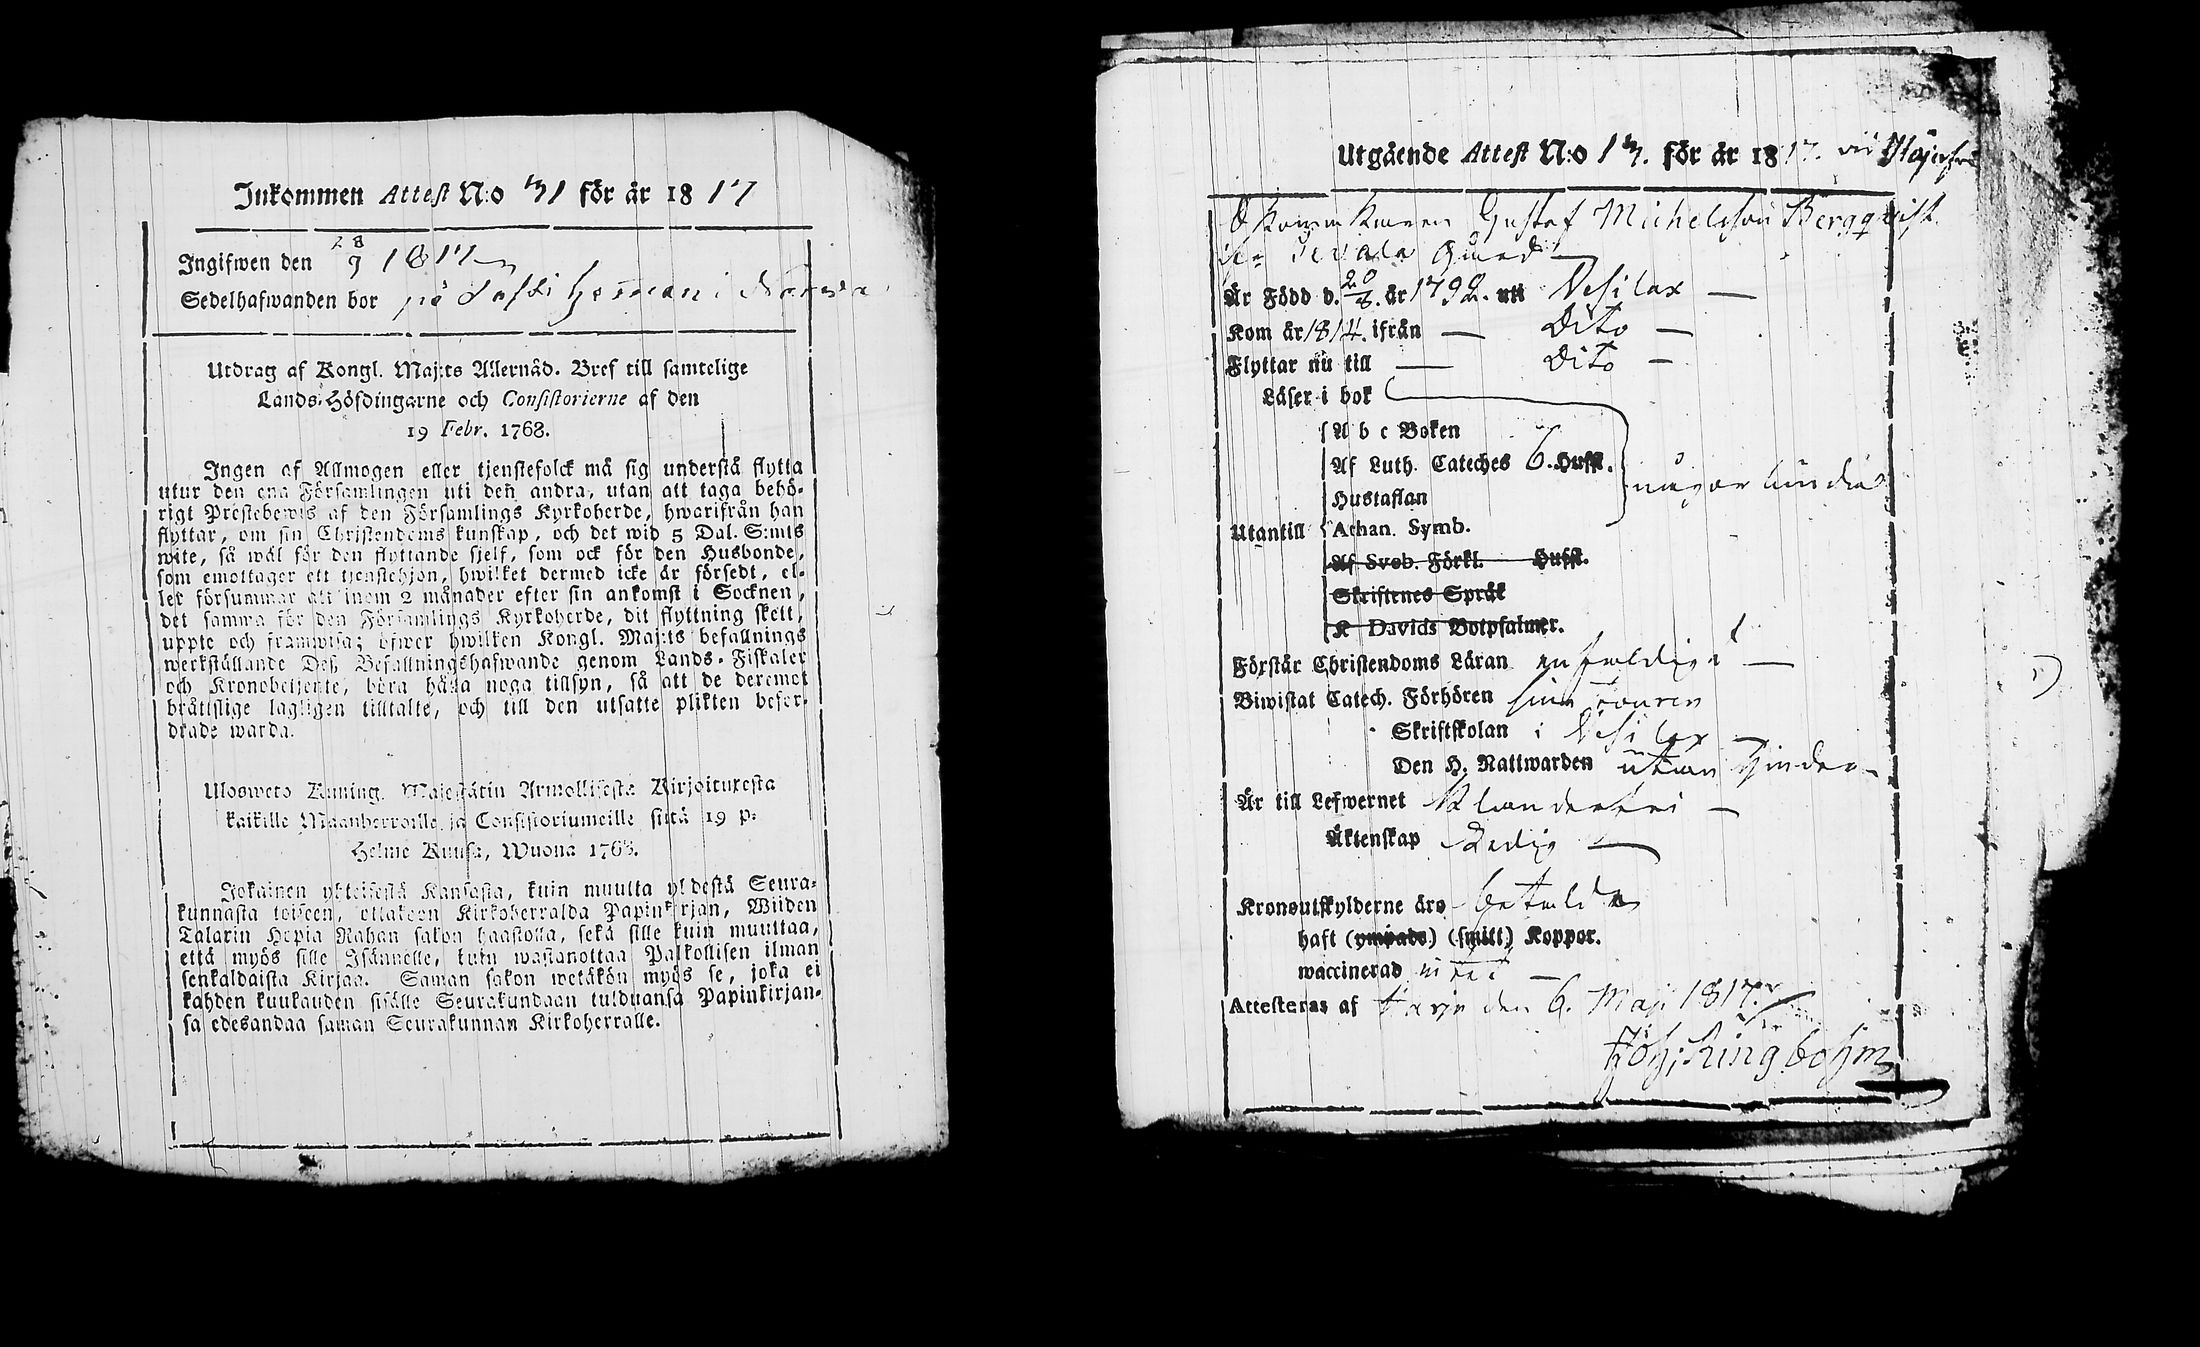 Inkommen Attest N:o 31 för år 1817
Ingifwen den 28/9 1817
Sedelhafwanden bor på
Utdrag af Kongl. Maj:ts Allernåd. Bref till samtelige
Lands-Höfdingarne och Consistorierne af den
19 Febr. 1768.
Ingen af Allmogen eller tjenstefolck må sig understå flytta
utur den ena Församlingen uti den andra, utan att taga behö-
rigt Prestebewis af den Församlings Kyrkoherde, hwarifrån han
flyttar, om sin Christendoms kunskap, och det wid 5 Dal. S:mts
wite, så wäl för den flyttande sjelf, som ock för den Husbonde,
som emottager ett tjenstehjon, hwilket dermed icke är försedt, el-
ler försummar att inom 2 månader efter sin ankomst i Socknen,
det samma för den Församlings Kyrkoherde, dit flyttning skett,
uppte och framwisa; öfwer hwilken Kongl. Maj:ts befallnings
werkställande Deß Befallningshafwande genom Lands-Fiskaler
och Kronobetjente, böra hålla noga tillsyn, så att de deremot
bråttslige lagligen tilltalte, och till den utsatte plikten befor-
drade warda.
Ulosweto Kuning. Majestätin Armollisesta Kirjoituxesta
kaikille Maanherroille ja Consistoriumeille siitä 19 p:
Helme Kuusa, Wuona 1768.
Jokainen yhteisestä Kansasta, kuin muulta yhdestä Seura-
kunnasta toiseen, ottakoon Kirkoherralda Papinkirjan, Wiiden
Talarin Hopia Rahan sakon haastolla, sekä sille kuin muuttaa,
että myös sille Isännelle, kuin wastanottaa Palkollisen ilman
senkaldaista Kirjaa. Saman sakon wetäkön myös se, joka ei
kahden kuukauden sisälle Seurakundaan tulduansa Papinkirjan-
sa edesandaa saman Seurakunnan Kirkoherralle.
Utgående Attest N:o 13. för år 1817.
Gustaf Michelsson Bergqvist
Är Född d. 20/8. år 1792. uti Vesilax
Kom år 1814. ifrån — Dito —
Flyttar nu till — Dito —
Läser i bok
A b c Boken
Af Luth. Cateches 6. Hufst.
någorlunda
Hustaflan
Utantill Athan. Symb.
Af Sveb. Förkl. Hufst.
Skriftenes Språk
K Davids Botpsalmer.
Förstår Christendoms Läran enfaldigt —
Biwistat Catech. Förhören sina
Skriftskolan i Vesilax —
Den H. Nattwarden utan hinder
Är till Lefwernet klanderfri —
Äktenskap Ledig —
Kronoutskylderne äro betalda
haft (ympade) (smitt) Koppor.
waccinerad
Attesteras af den 6. Maji 1817.
Joh: Ringbohm